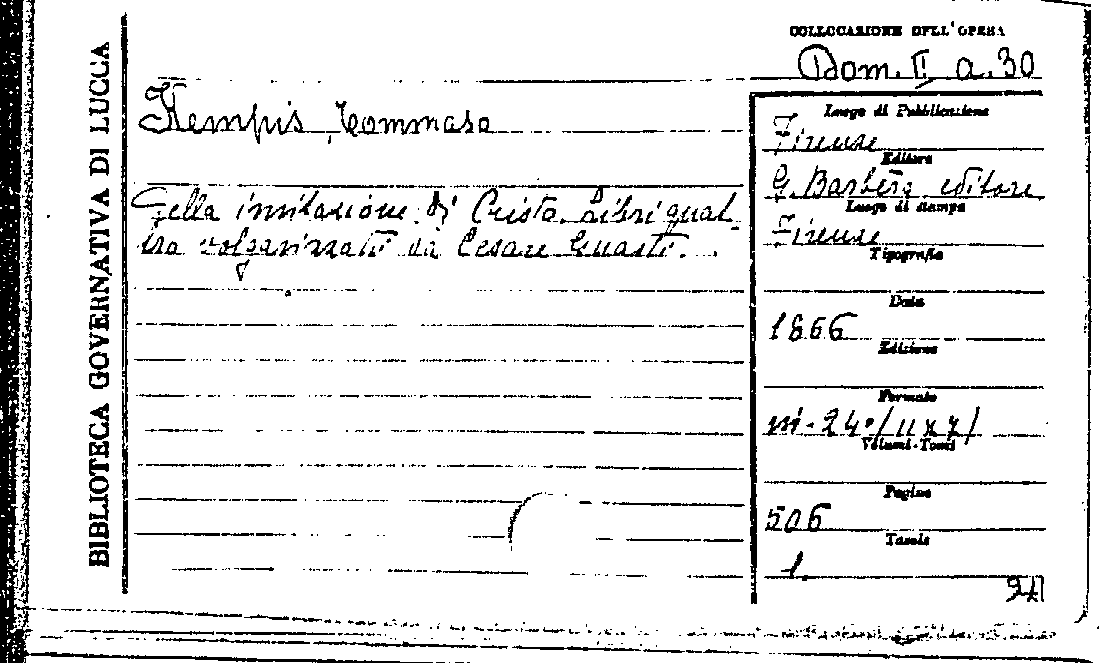 BIBLIOTECA GOVERNATIVA DI LUCCA
COLLOCAZIONE DELL'OPERA
Dom. II a. 30
Kempis, Tommaso
Della imitazione di Cristo. Libri quat-
tro volgarizzati da Cesare Guasti.
Luogo di Pubblicazione
Firenze
Editore
G. Barbèra editore
Luogo di stampa
Firenze
Tipografia
Data
1866
Edizione
Formato
in-24°/11x7/
Volumi-Tomi
Pagine
506
Tavole
1.